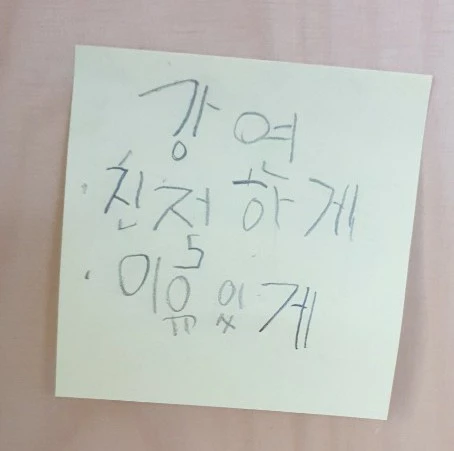 강연
· 친절하게
· 이유있게